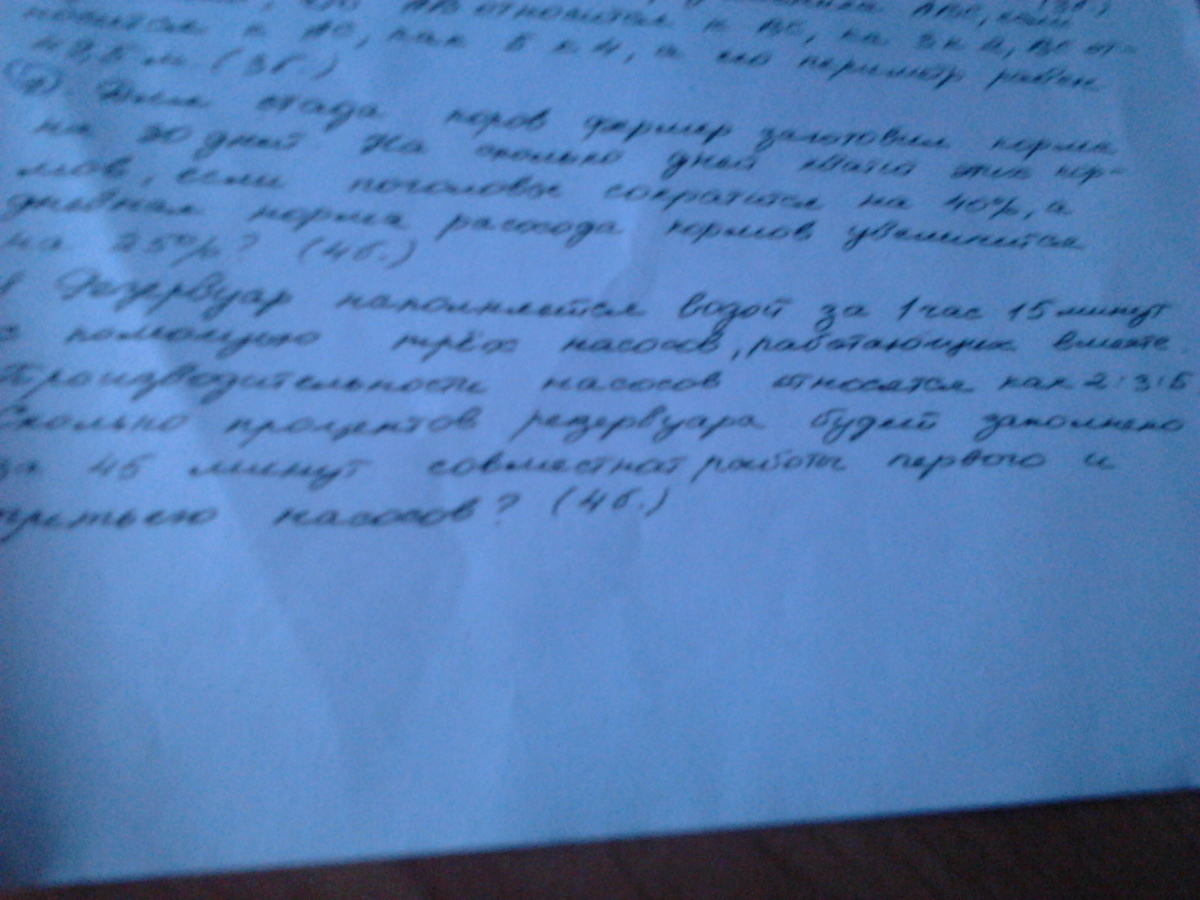 АВ относится к ВС, как 3 к 4, ВС от-
носится к АС, как 5 к 4, а его периметр равен
48,5 м (3б.)
7) Для стада коров фермер заготовил корма
на 30 дней На сколько дней хватит этих кор-
мов, если поголовье сократится на 40%, а
дневная норма расхода кормов увеличится
на 25%? (4б.)
Резервуар наполняется водой за 1 час 15 минут
с помощью трёх насосов, работающих вместе.
Производительности насосов относятся как 2:3:5
Сколько процентов резервуара будет заполнено
за 45 минут совместной работы первого и
третьего насосов? (4б.)